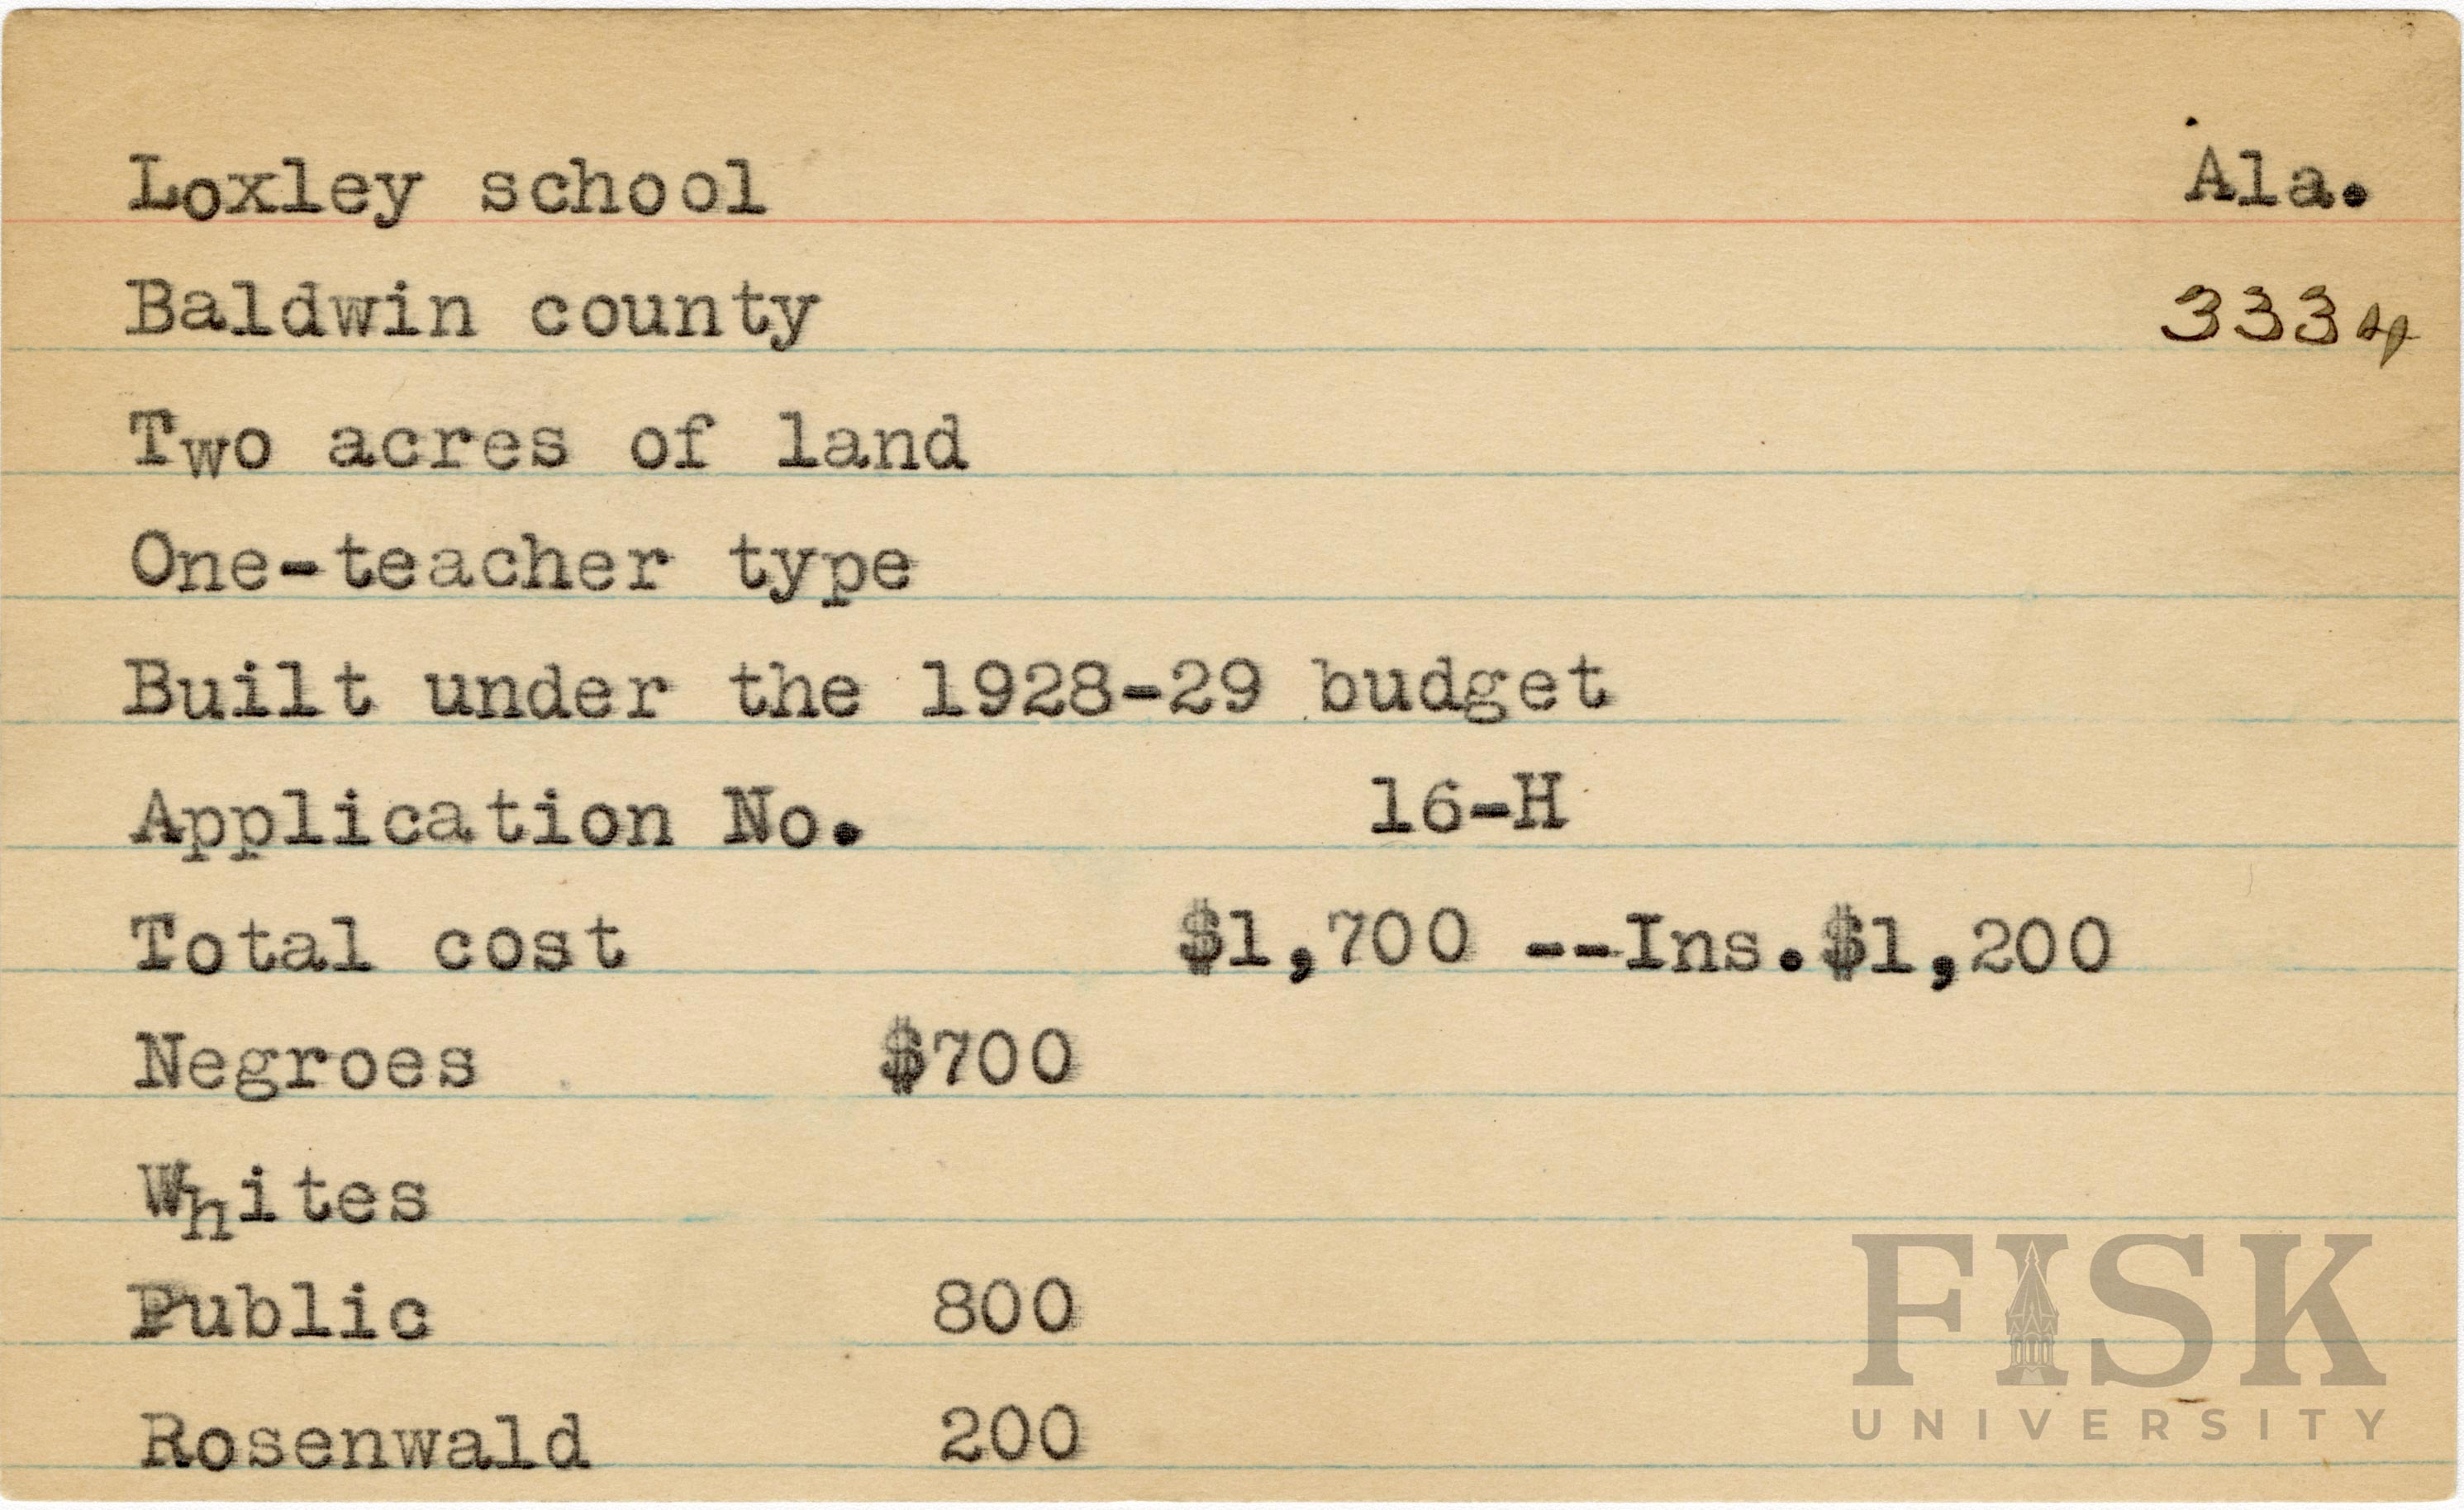 Loxley school Ala.
Baldwin county 3334
Two acres of land
One-teacher type
Built under the 1928-29 budget
Application No. 16-H
Total cost $1,700 --Ins.$1,200
Negroes $700
Whites
Public 800
Rosenwald 200
FISK
UNIVERSITY